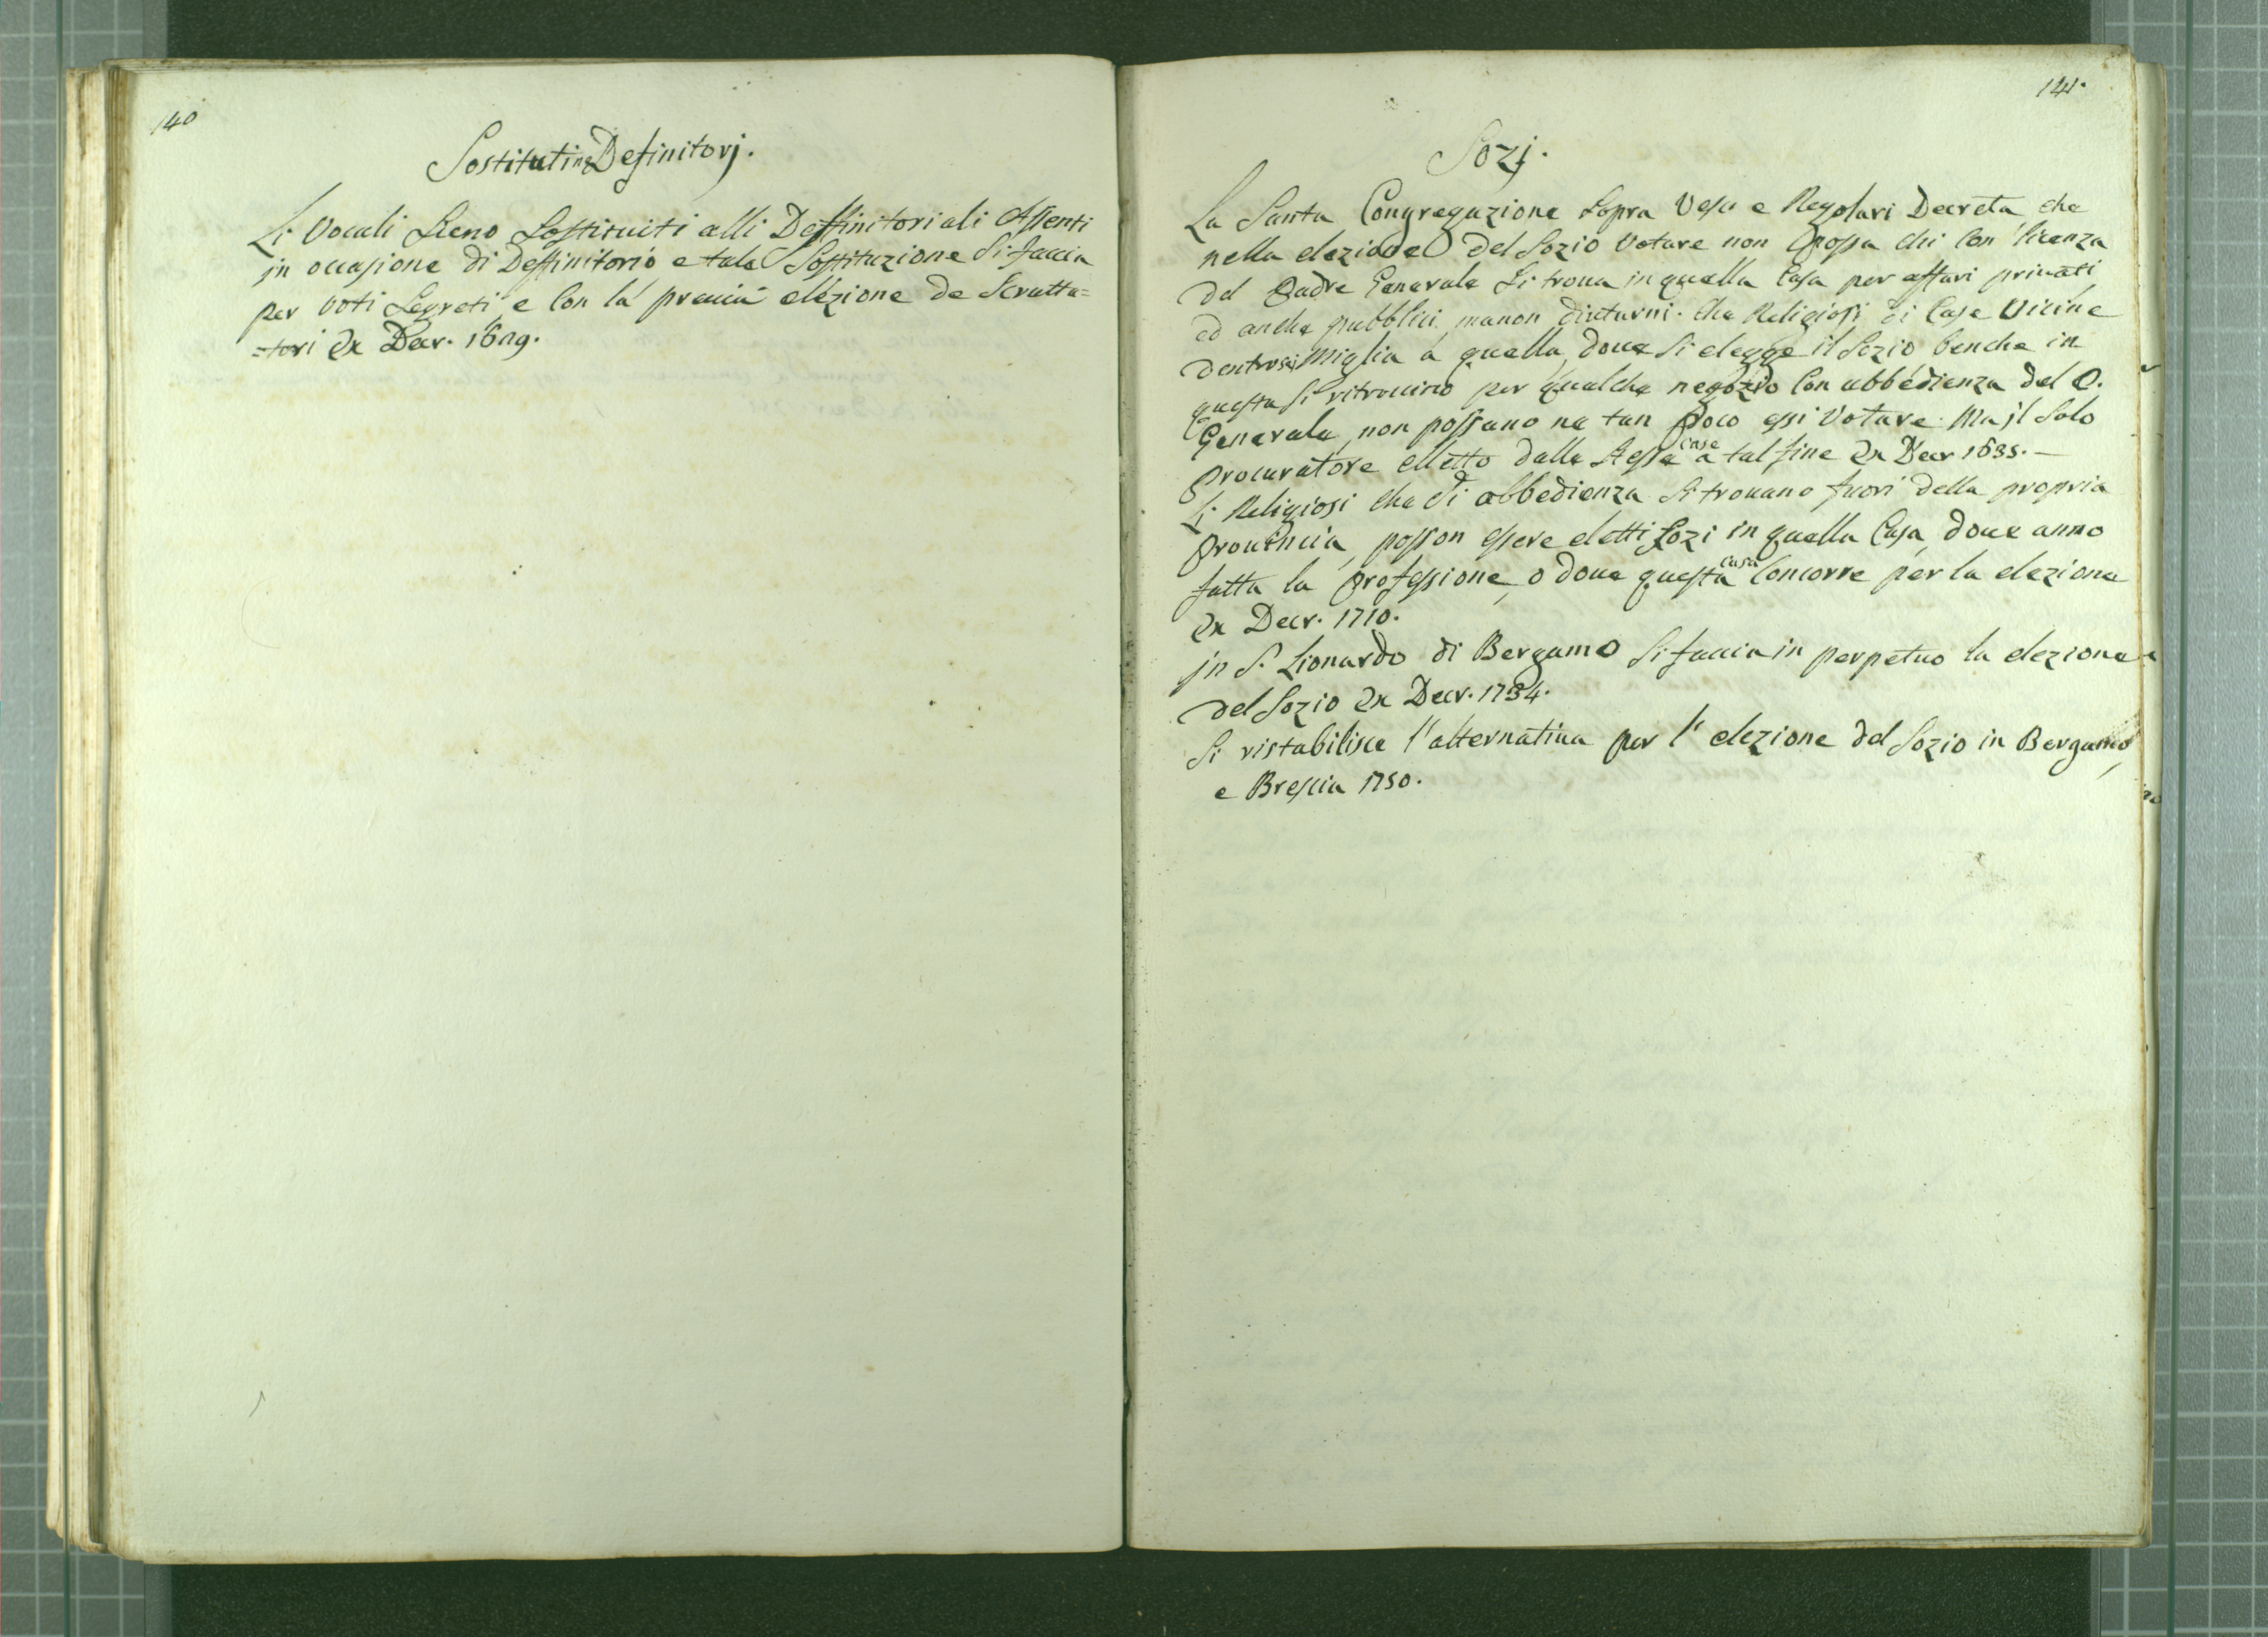 140
Sostituti ne Definitorj.
Li Vocali Sieno Sostituiti alli Deffinitoriali Assenti
in occasione di Deffinitorio e tale Sostituzione Si faccia
per voti Segreti, e Con la previa elezione de Scrutta=
=tori Ex Decr.
141.
Sozj.
La Santa Congregazione Sopra Vesci e Regolari Decreta che
nella elezione del Sozio Votare non possa chi Con licenza
del Padre Generale Si troua in quella Casa per affari priuati
ed anche pubblici, ma non diuturni. Che Religiosi di Case Vicine
dentro sei Miglia a quella, doue Si elegge il Sozio benche in
questa Si ritrouino per qualche negozio Con ubbedienza del P.
Generale, non possano ne tan poco essi Votare. Ma il Solo
Procuratore eletto dalle Stesse case a tal fine Ex Decr 1635.—
Li Religiosi che di obbedienza Si trouano fuori della propria
Prouincia, posson essere eletti Sozi in quella Casa, doue anno
fatta la Professione, o doue questa casa Concorre per la elezione
Ex Decr. 1710.
in S. Lionardo di Bergamo Si faccia in perpetuo la elezione
del Sozio Ex Decr. 1734.
Si ristabilisce l'alternatiua per l'elezione del Sozio in Bergamo,
e Brescia 1750.